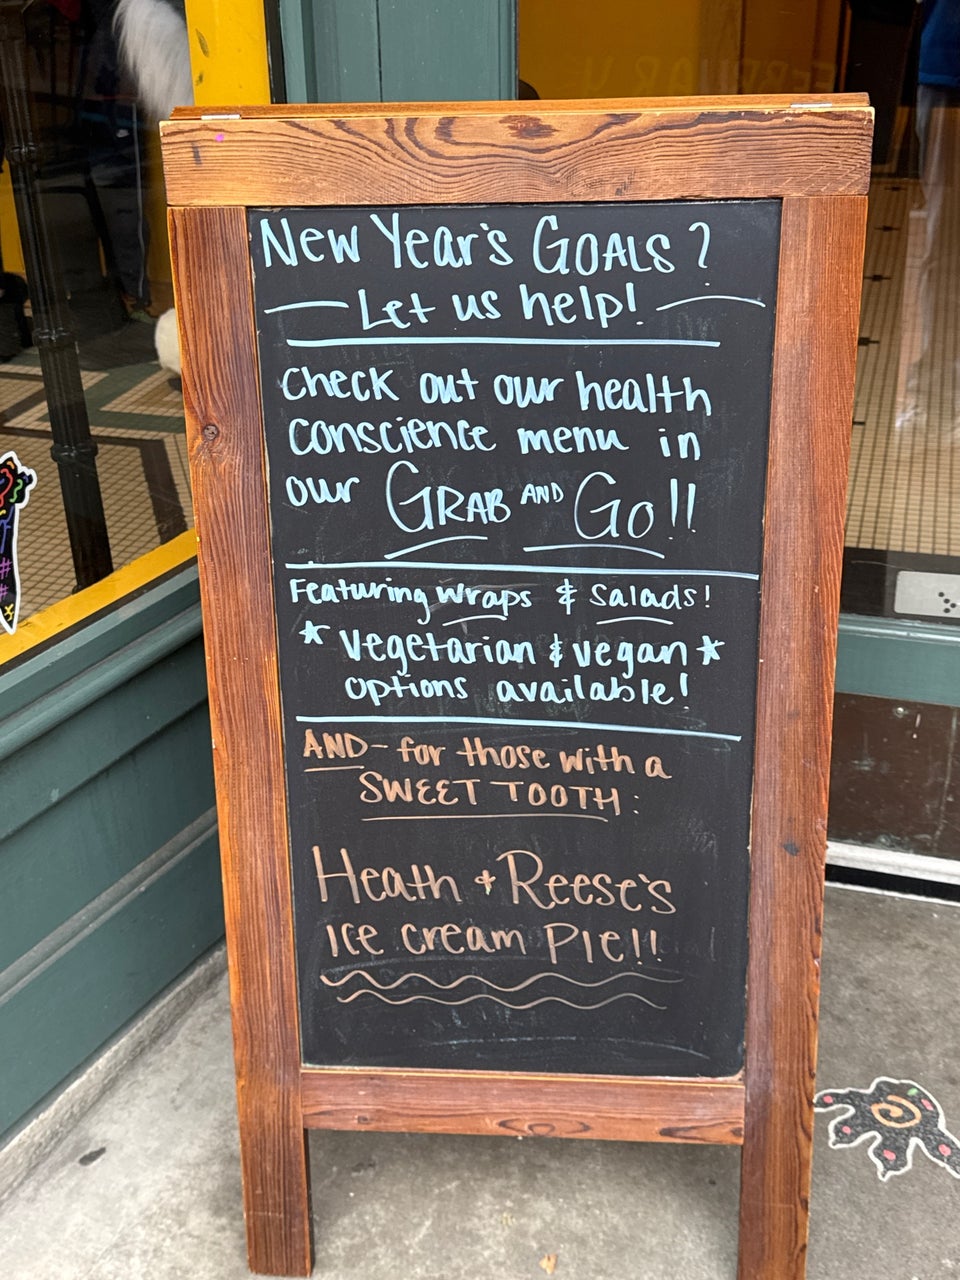 New Year's GOALS?
Let us help!
Check out our health
conscience menu in
our GRAB AND GO!!
Featuring wraps & Salads!
* Vegetarian & vegan *
options available!
AND- for those with a
SWEET TOOTH:
Heath + Reese's
Ice cream Pie!!